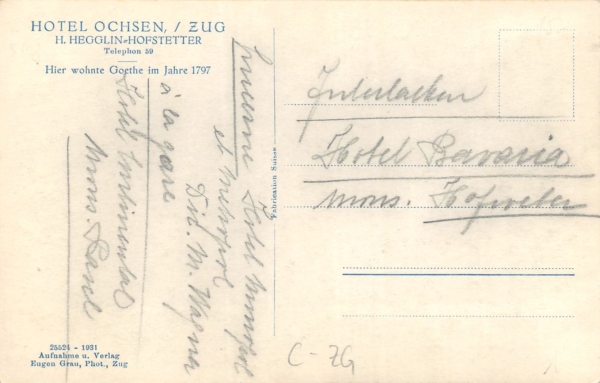 HOTEL OCHSEN, / ZUG
H. HEGGLIN-HOFSTETTER
Telephon 59
Hier wohnte Goethe im Jahre 1797
Lucerne Hotel Monopol
et Metropol
Dir. M. Wagner
à la gare
Hotel Continental
Mons.
Fabrication Suisse
Interlacken
Hotel Bavaria
Mons. Hofweber
25524 - 1931
Aufnahme u. Verlag
Eugen Grau, Phot., Zug
C-ZG